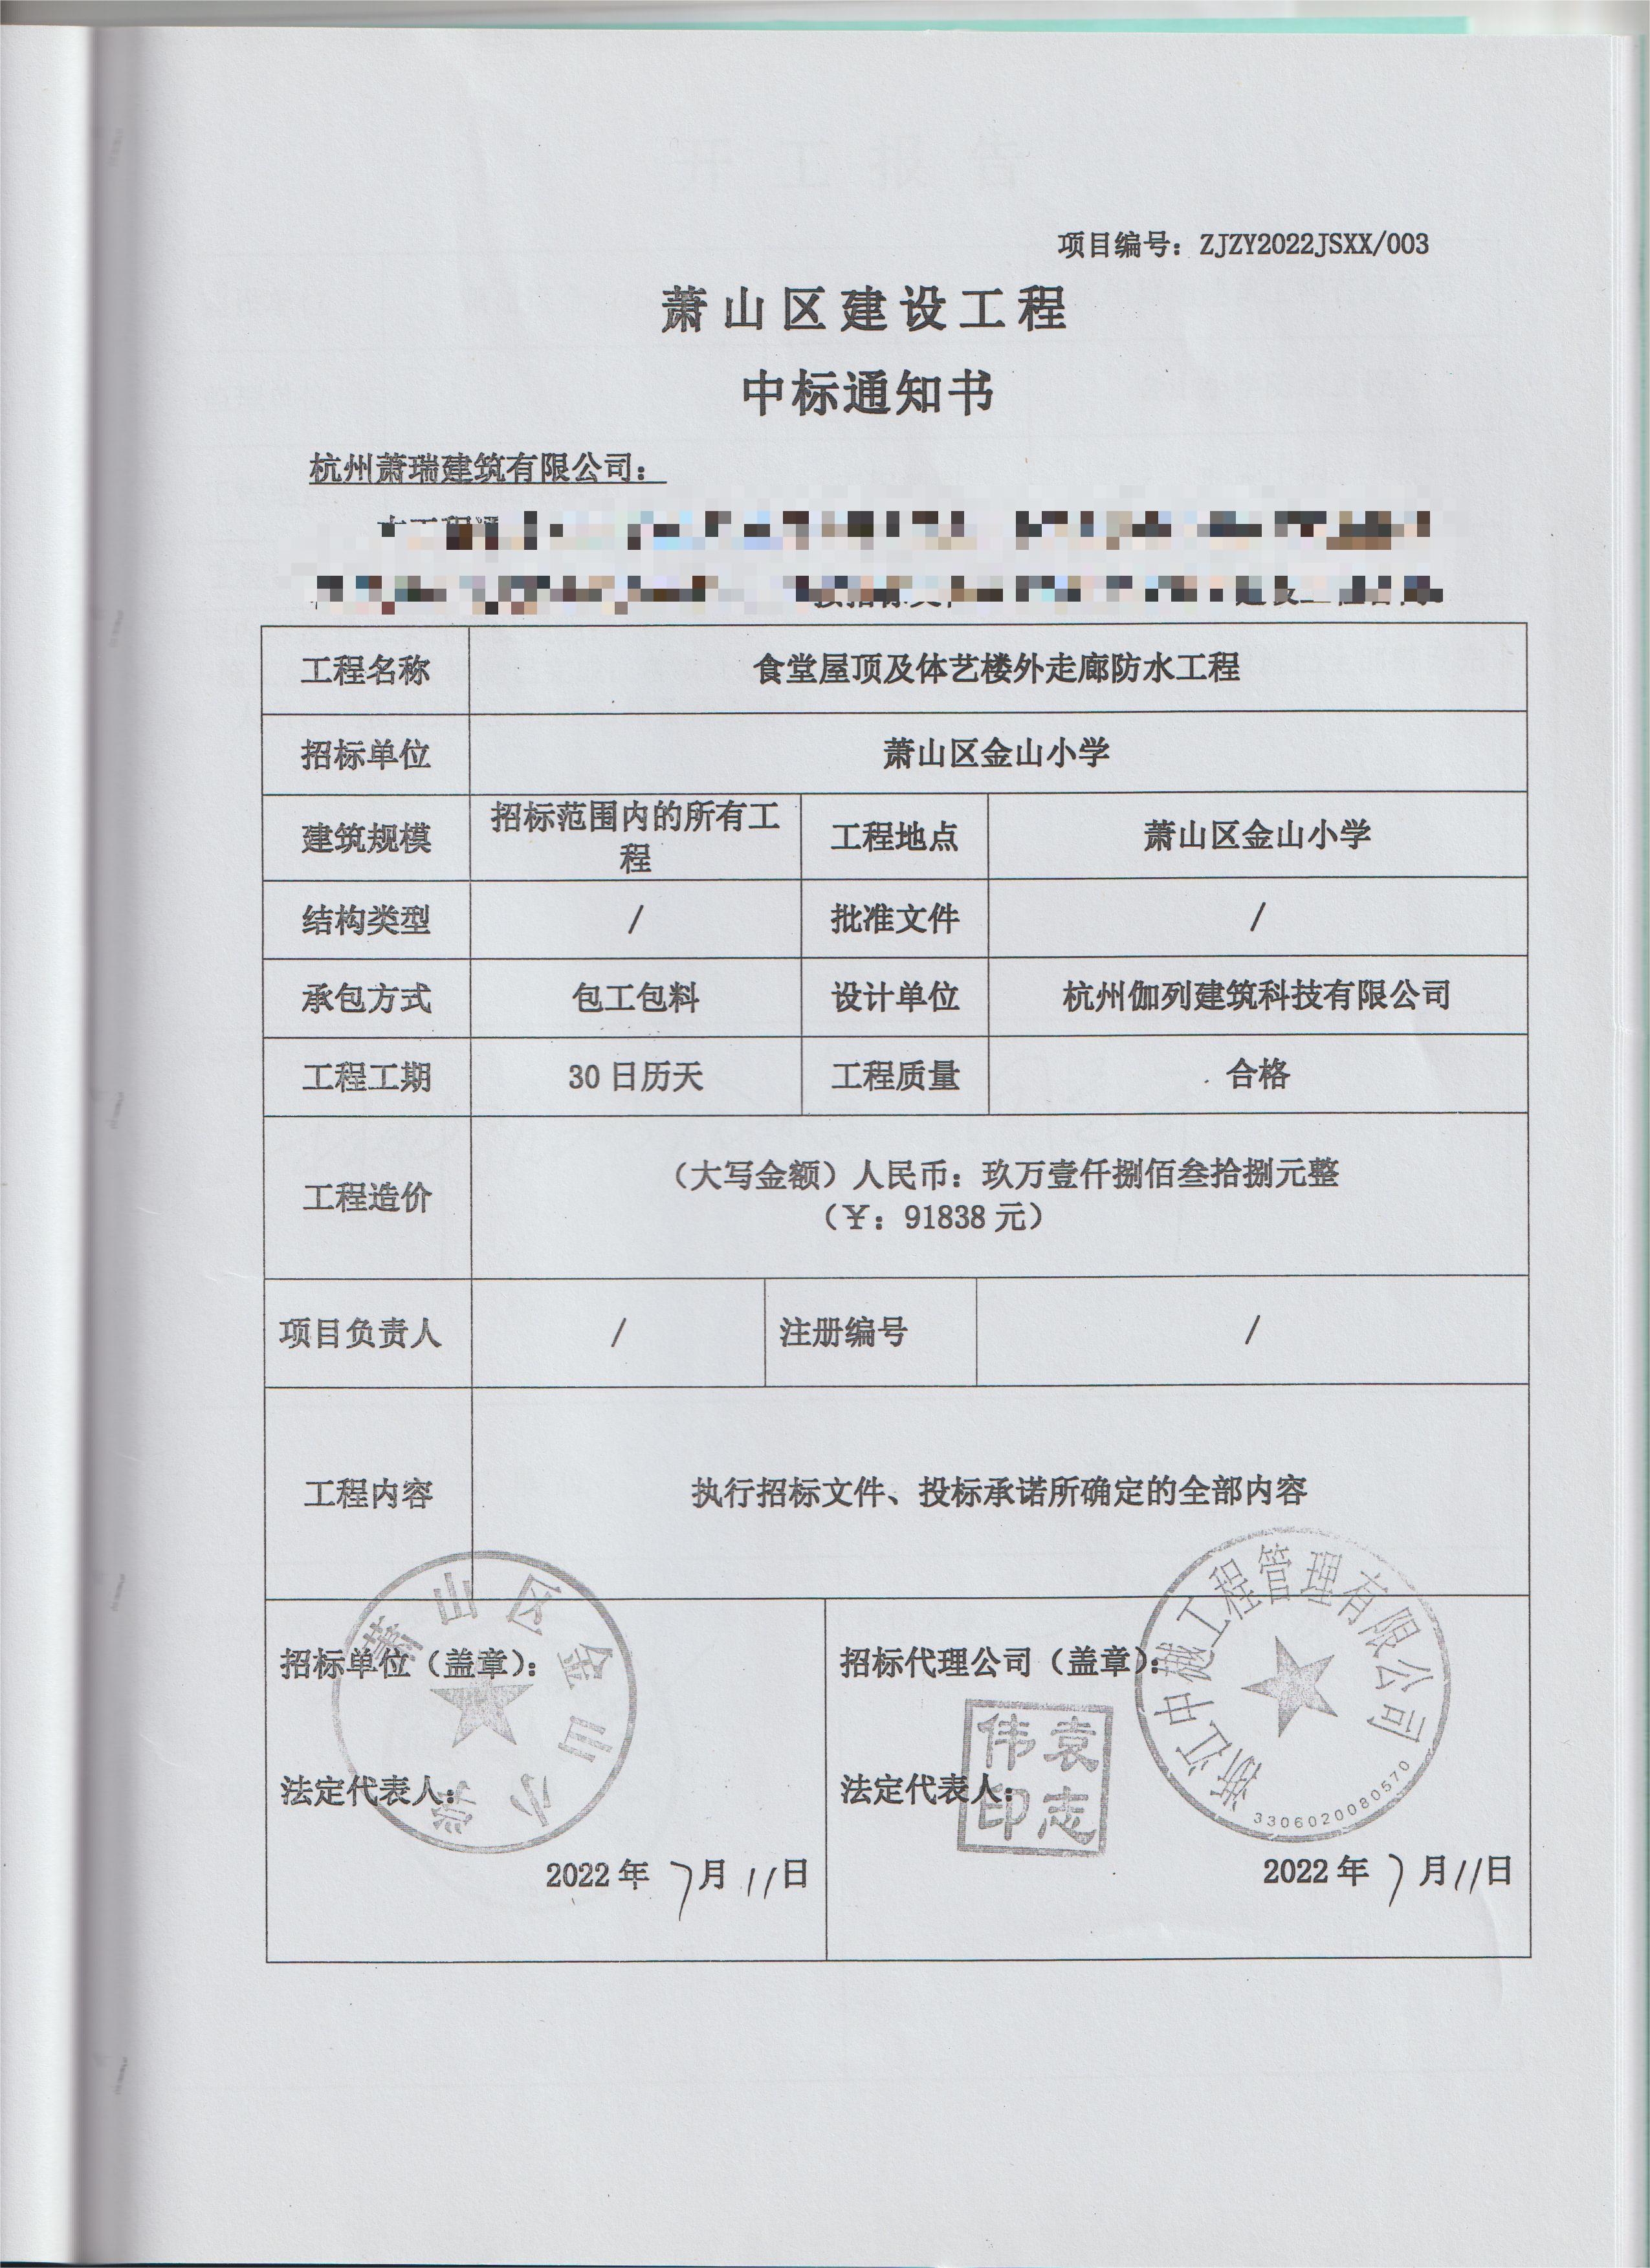 项目编号：ZJZY2022JSXX/003
萧山区建设工程
中标通知书
杭州萧瑞建筑有限公司：
工程名称 食堂屋顶及体艺楼外走廊防水工程
招标单位 萧山区金山小学
建筑规模 招标范围内的所有工程 工程地点 萧山区金山小学
结构类型 / 批准文件 /
承包方式 包工包料 设计单位 杭州伽列建筑科技有限公司
工程工期 30日历天 工程质量 合格
工程造价 （大写金额）人民币：玖万壹仟捌佰叁拾捌元整
（￥：91838元）
项目负责人 / 注册编号 /
工程内容 执行招标文件、投标承诺所确定的全部内容
招标单位（盖章）： 招标代理公司（盖章）：
法定代表人： 法定代表人：
2022年7月11日 2022年7月11日
萧山区金山小学
浙江中樾工程管理有限公司
3306020080570
袁志伟印